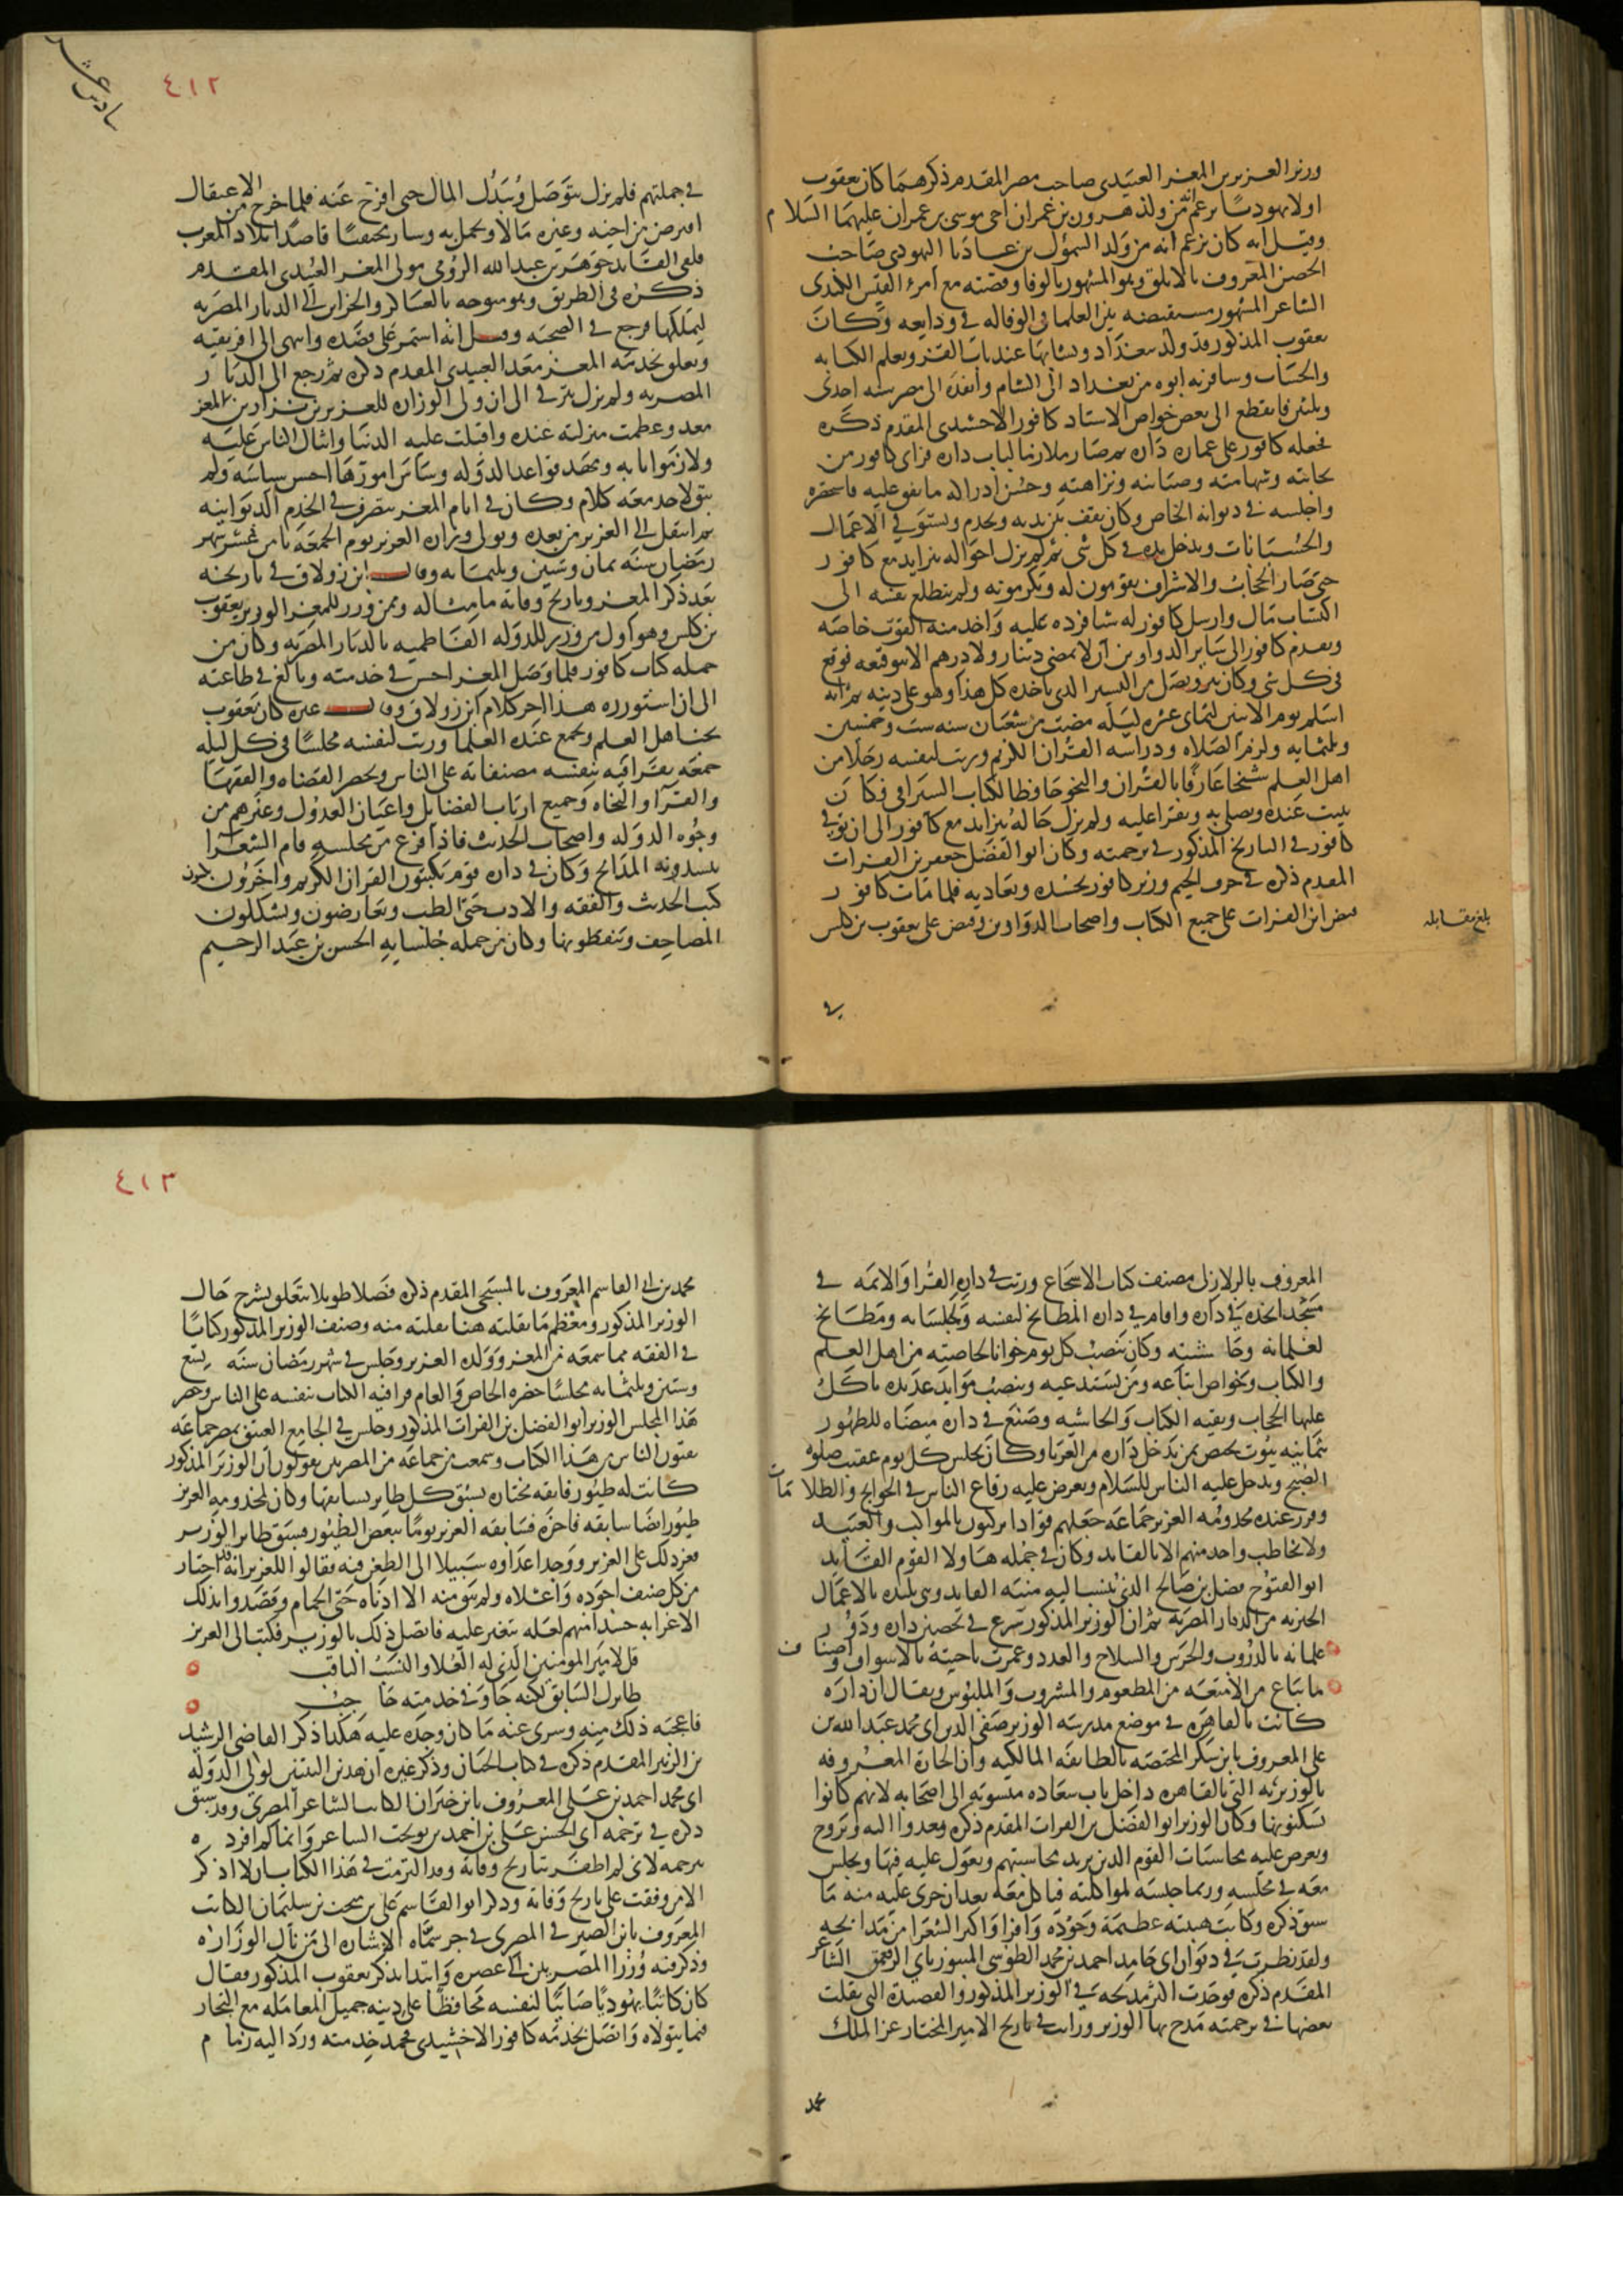 وزير العزيز بن المعز العبيدي صاحب مصر المقدم ذكرهما كان يعقوب
اولا يهوديا يزعم انه من ولد هرون بن عمران اخي موسى بن عمران عليهما السلام
وقيل انه كان يزعم انه من ولد السمؤل بن عاديا اليهودي صاحب
الحصن المعروف بالابلق وهو المشهور بالوفا وقصته مع امرء القيس الكندي
الشاعر المشهور مستفيضة بين العلما في الوفا له في ودايعه وكان
يعقوب المذكور قد ولد ببغداد ونشا بها عند باب القز وتعلم الكتابه
والحساب وسافر به ابوه من بغداد الى الشام وانفده الى مصر سنه احدى
وثلثين فانقطع الى بعض خواص الاستاد كافور الاخشيدي المقدم ذكره
فجعله كافور على عمارة داره ثم صار ملازما لباب داره فراى كافور من
نجابته وشهامته وصيانته ونزاهته وحسن ادراكه ما نفق عليه فاستحضره
واجلسه في ديوانه الخاص وكان يقف بين يديه ويخدم ويستوفي الاعمال
والحسبانات ويدخل يده في كل شي ثم لم يزل احواله تتزايد مع كافور
حتى صار الحجاب والاشراف يقومون له ويكرمونه ولم تتطلع نفسه الى
اكتساب مال وارسل له كافور شيا فرده عليه واخد منه القوت خاصه
وتقدم كافور الى ساير الدواوين ان لا يمضى دينار ولا درهم الا بتوقيعه فوقع
في كل شي وكان يبر ويصل من اليسير الدي ياخده كل هذا وهو على دينه ثم انه
اسلم يوم الاثنين لثماى عشره ليله مضت من شعبان سنه ست وخمسين
وثلثمايه ولزم الصلاه ودراسه القران الكريم ورتب لنفسه رجلا من
اهل العلم شيخا عارفا بالقران والنحو حافظا لكتاب السيرافي فكان
يبيت عنده ويصلي به ويقرا عليه ولم يزل حاله يتزايد مع كافور الى ان توفي
كافور في التاريخ المذكور في ترجمته وكان ابو الفضل جعفر بن الفرات
المقدم ذكره في حرف الجيم وزير كافور يحسده ويعاديه فلما مات كافور
قبض ابن الفرات على جميع الكتاب واصحاب الدواوين وقبض على يعقوب بن كلس
بلغ مقابله
في
٤١٢
سادس عشر
في جملتهم فلم يزل يتوصل ويبدل المال حتى افرج عنه فلما خرج من الاعتقال
اقترض من اخيه وغيره مالا وتجمل به وسار مختفيا قاصدا بلاد المغرب
فلقي القايد جوهر بن عبد الله الرومي مولى المعز العبيدي المقدم
ذكره في الطريق وهو متوجه بالعساكر والخزاين الى الديار المصريه
ليملكها فرجع في الصحبه وقيل انه استمر على قصده وانتهى الى افريقيه
وتعلق بخدمه المعز معد العبيدي المقدم ذكره ثم رجع الى الديار
المصريه ولم يزل يترقى الى ان ولى الوزاره للعزيز بن نزار بن المعز
معد وعظمت منزلته عنده واقبلت عليه الدنيا وانثال الناس عليه
ولازموا بابه ومهد قواعد الدوله وساس امورها احسن سياسه ولم
يبق لاحد معه كلام وكان في ايام المعز يتصرف في الخدم الديوانيه
ثم انتقل الى العزيز من بعده وتولى وزاره العزيز يوم الجمعه ثامن عشر شهر
رمضان سنه ثمان وستين وثلثمايه وقال ابن زولاق في تاريخه
بعد ذكر المعز وتاريخ وفاته ما مثاله وممن وزر للمعز الوزير يعقوب
بن كلس وهو اول من وزر للدوله الفاطميه بالديار المصريه وكان من
جمله كتاب كافور فلما وصل المعز احسن في خدمته وبالغ في طاعته
الى ان استوزره هذا اخر كلام ابن زولاق وقال غيره كان يعقوب
يحب اهل العلم ويجمع عنده العلما ورتب لنفسه مجلسا في كل ليله
جمعه يقرا فيه بنفسه مصنفاته على الناس ويحضر القضاه والفقها
والقرا والنحاه وجميع ارباب الفضايل واعيان العدول وغيرهم من
وجوه الدوله واصحاب الحديث فاذا فرغ من مجلسه قام الشعرا
ينشدونه المدايح وكان في داره قوم يكتبون القران الكريم واخرون يكتبون
كتب الحديث والفقه والادب حتى الطب ويعارضون ويشكلون
المصاحف وينقطونها وكان من جمله جلسايه الحسن بن عبد الرحيم
المعروف بالزلازلي مصنف كتاب الاسجاع ورتب في داره القرا والايمه في
مسجد اتخذه في داره واقام في داره المطابخ لنفسه ولجلسايه ومطابخ
لغلمانه وحاشيته وكان ينصب كل يوم خوانا لخاصته من اهل العلم
والكتاب وخواص اتباعه ومن يستدعيه وينصب موايد عديده ياكل
عليها الحجاب وبقيه الكتاب والحاشيه وصنع في داره ميضاه للطهور
ثمانيه بيوت تختص بمن يدخل داره من الغربا وكان يجلس كل يوم عقيب صلوه
الصبح ويدخل عليه الناس للسلام وتعرض عليه رقاع الناس في الحوايج والظلامات
وقرر عنده مخدومه العزيز جماعه جعلهم قوادا يركبون بالمواكب والعبيد
ولا يخاطب واحد منهم الا بالقايد وكان في جمله هاولا القوم القايد
ابو الفتوح فضل بن صالح الذي ينسب اليه منيه القايد وهي بلده بالاعمال
الجيزيه من الديار المصريه ثم ان الوزير المذكور شرع في تحصين داره ودور
غلمانه بالدروب والحرس والسلاح والعدد وعمرت ناحيته بالاسواق واصناف
ما يباع من الامتعه من المطعوم والمشروب والملبوس ويقال ان داره
كانت بالقاهره في موضع مدرسه الوزير صفي الدين ابي محمد عبد الله بن
علي المعروف بابن شكر المختصه بالطايفه المالكيه وان الحاره المعروفه
بالوزيريه التي بالقاهره داخل باب سعاده منسوبه الى اصحابه لانهم كانوا
يسكنونها وكان الوزير ابو الفضل بن الفرات المقدم ذكره يغدوا اليه ويروح
ويعرض عليه محاسبات القوم الدين يريد محاسبتهم ويعول عليه فيها ويجلس
معه في مجلسه وربما حبسه لمواكلته فياكل معه بعد ان جرى عليه منه ما
سبق ذكره وكانت هيبته عظيمة وجوده وافرا واكثر الشعرا من مدايحه
ولقد نظرت في ديوان ابي حامد احمد بن محمد الطوسي المنبوز بابي الرقعمق الشاعر
المقدم ذكره فوجدت اكثر مدحه في الوزير المذكور والقصيدة التي نقلت
بعضها في ترجمته مدح بها الوزير ورايت في تاريخ الامير المختار عز الملك
محمد
٤١٣
محمد بن ابي القاسم المعروف بالمسبحي المقدم ذكره فصلا طويلا يتعلق بشرح حال
الوزير المذكور ومعظم ما نقلته هنا نقلته منه وصنف الوزير المذكور كتابا
في الفقه مما سمعه من المعز وولده العزيز وجلس في شهر رمضان سنه تسع
وستين وثلثمايه مجلسا حضره الخاص والعام قرا فيه الكتاب بنفسه على الناس وحضر
هذا المجلس الوزير ابو الفضل بن الفرات المذكور وجلس في الجامع العتيق بمصر جماعه
يفتون الناس من هذا الكتاب وسمعت من جماعه من المصريين يقولون ان الوزير المذكور
كانت له طيور فايقه مختاره تسبق كل طاير يسابقها وكان لمخدومه العزيز
طيور ايضا سابقه فاخره فسابقه العزيز يوما ببعض الطيور فسبق طاير الوزير
فعز ذلك على العزيز ووجد اعداوه سبيلا الى الطعن فيه فقالوا للعزيز انه قد اختار
من كل صنف اجوده واعلاه ولم يبق منه الا ادناه حتى الحمام وقصدوا بذلك
الاغرا به حسدا منهم لعله يتغير عليه فاتصل ذلك بالوزير فكتب الى العزيز
قل لامير المومنين الذي له العلا والنسب الثاقب
طايرك السابق لكنه جا وفي خدمته حاجب
فاعجبه ذلك منه وسرى عنه ما كان وجده عليه هكذا ذكر القاضي الرشيد
بن الزبير المقدم ذكره في كتاب الجنان وذكر غيره ان هذين البيتين لولي الدوله
ابي محمد احمد بن علي المعروف بابن خيران الكاتب الشاعر المصري وقد سبق
ذكره في ترجمه ابي الحسن علي بن احمد بن نوبخت الشاعر وانما لم افرد
بترجمه لاني لم اظفر بتاريخ وفاته وقد التزمت في هذا الكتاب ان لا اذكر
الا من وقفت على تاريخ وفاته وذكر ابو القاسم علي بن منجب بن سليمان الكاتب
المعروف بابن الصيرفي المصري في جزء سماه الاشاره الى من نال الوزاره
وذكر فيه وزرا المصريين الى عصره وابتدا بذكر يعقوب المذكور فقال
كان كاتبا يهوديا صاينا لنفسه محافظا على دينه جميل المعامله مع التجار
فيما يتولاه واتصل بخدمه كافور الاخشيدي فحمد خدمته ورد اليه زمام